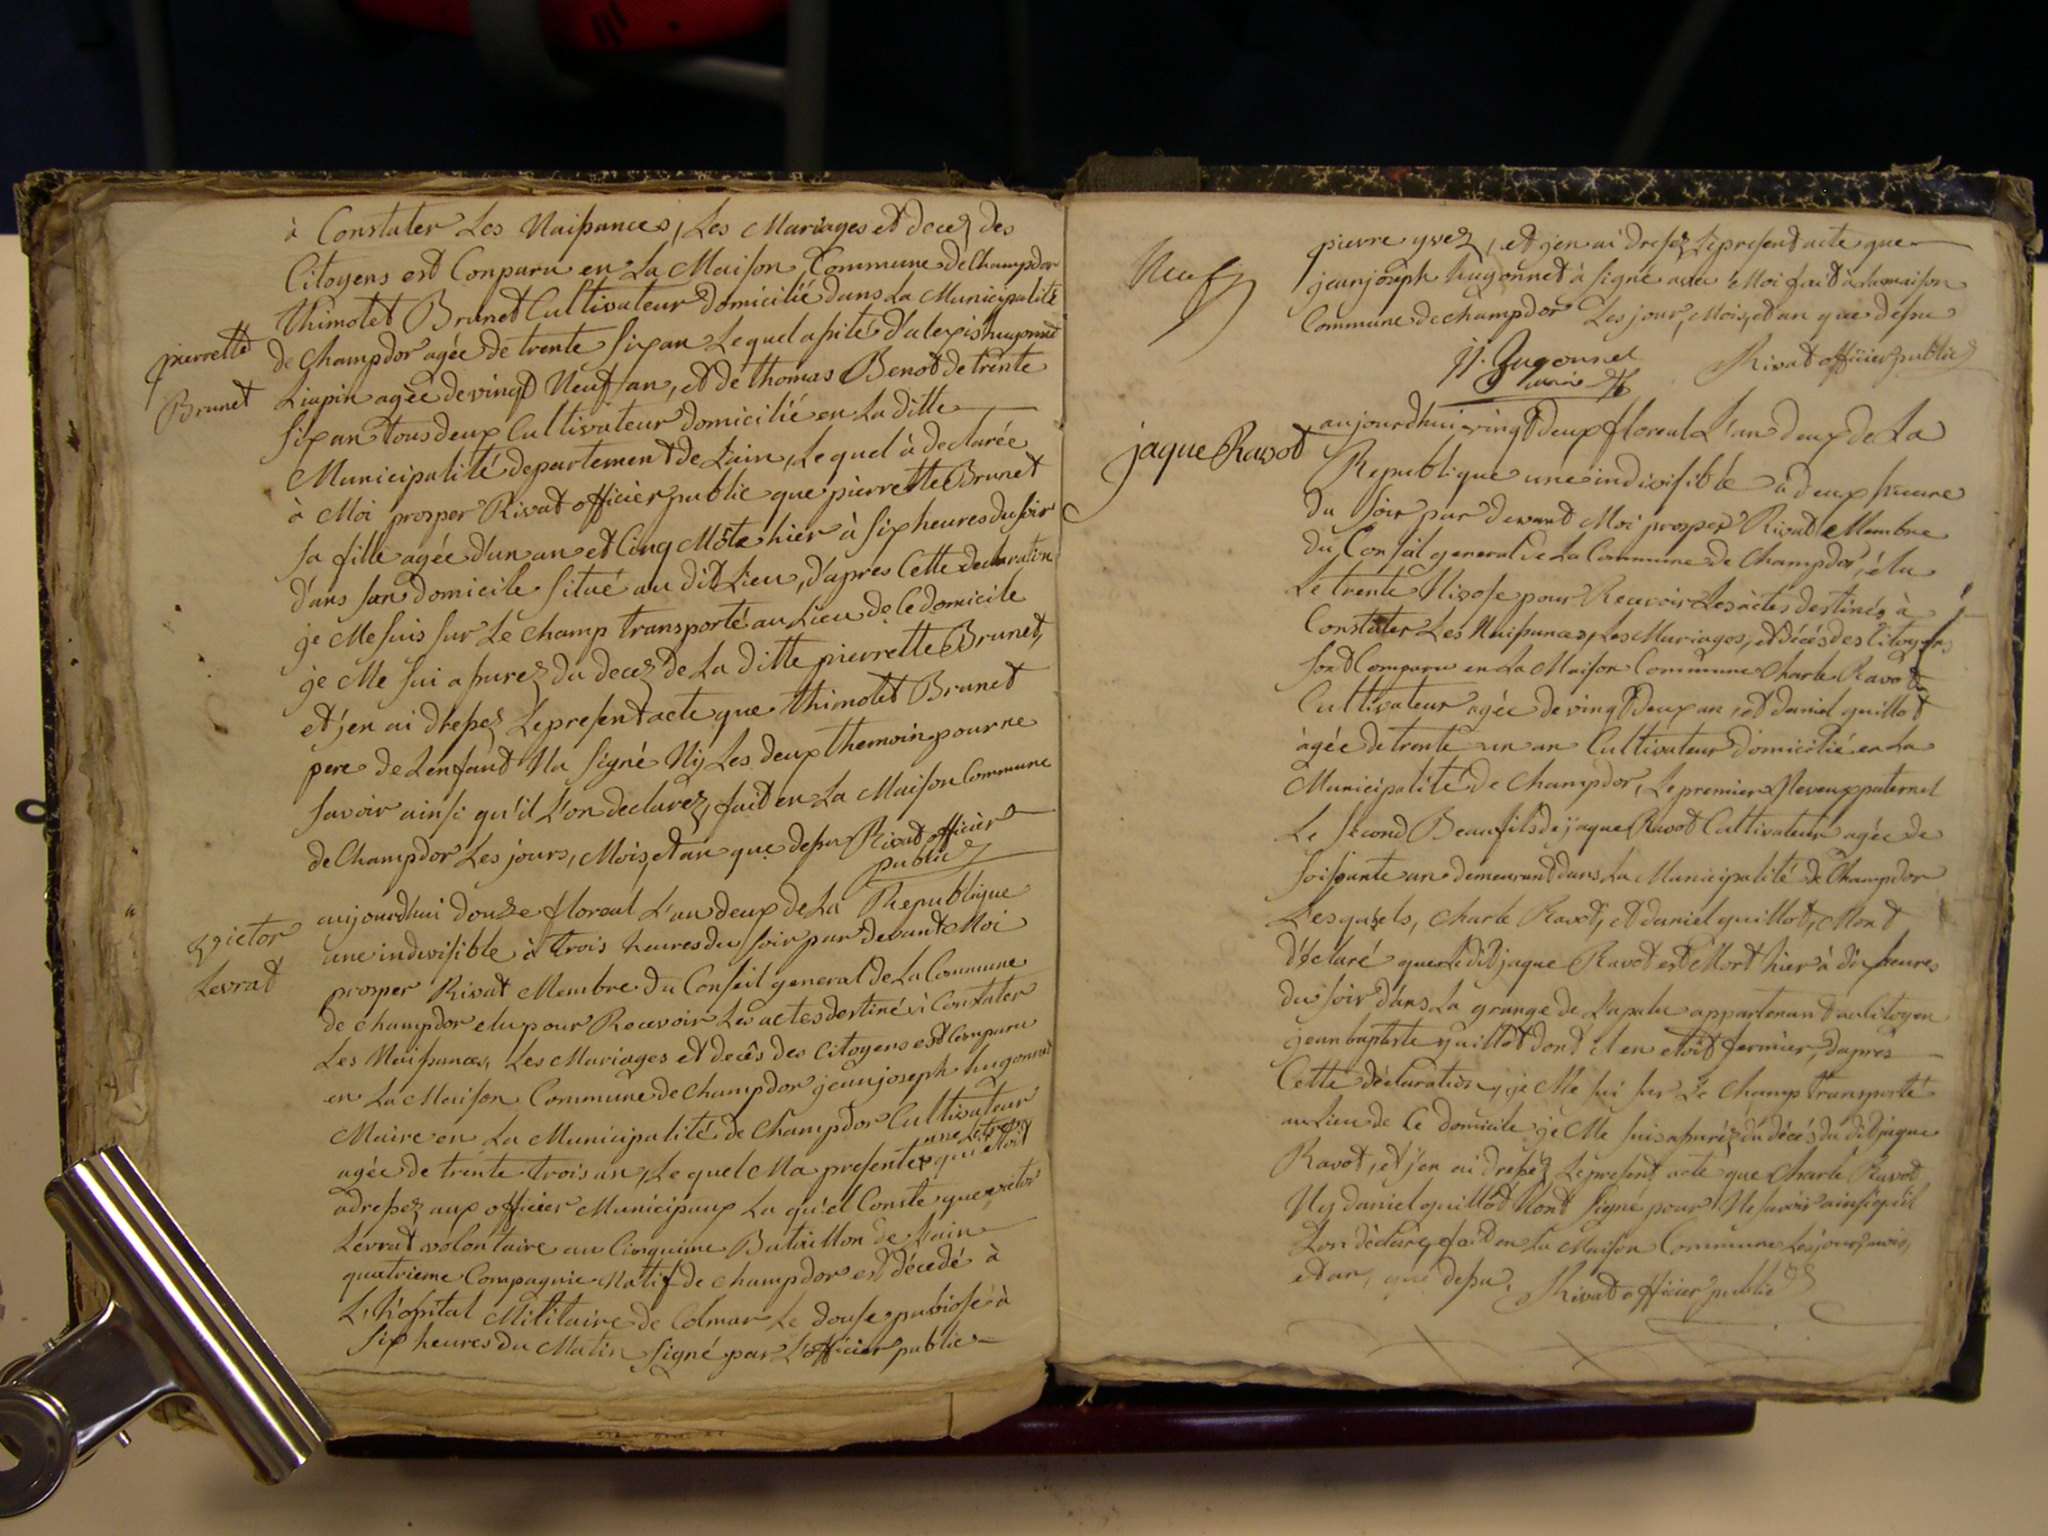 à Constater Les Naissances, Les Mariages et decez des
Citoyens est Conparu en La Maison Commune de Champdor
Thimotet Brunet Cultivateur domicilié dans La Municipalité
de Champdor agée de trente six an Lequel asité d'alexis hugonnet
pierrette
Brunet
Liapin agée de vingt Neuf an, et de thomas Benot de trente
six an tous deux Cultivateur domicilié en La ditte
Municipalité departement de L'ain, Lequel à declarée
à Moi prosper Rivat officier public que pierrette Brunet
sa fille agée d'un an et Cinq hier à six heures du soir
d'ans son domicile situé au dit Lieu, d'apres Cette declaration
je Me suis sur Le champ transporté au Lieu de Ce domicile
je Me sui assurez du decez de La ditte pierrette Brunet,
et j'en ai dressez Le present acte que thimotet Brunet
pere de L'enfant Na signé Ny Les deux themoin pour ne
savoir ainsi qu'il L'on declarez, fait en La Maison Commune
de Champdor Les jours, Mois, et an que dessu Rivat officier
public
aujourd'hui douze floreal L'an deux de La Republique
une indivisible à trois heures du soir par devant Moi
victor
Levrat
prosper Rivat Membre du Conseil general de La Commune
de champdor elu pour Recevoir Les actes destiné à Constater
Les Naissances, Les Mariages et decês des Citoyens est Comparu
en La Maison Commune de Champdor jean joseph hugonnet
Maire en La Municipalité de Champdor Cultivateur
agée de trente trois an, Lequel Ma presentez une Letre qui etoit
adressez aux officier Municipaux La qu'el Conste que victor
Levrat volontaire au Cinquime Bataillon de L'ain
quatrieme Compagnie Natif de champdor est décedé à
L'hôpital Militaire de Colmar Le douse à
six heures du Matin signé par L'officier public
pierre yvez, et j'en ai dresez Le present acte que
jean joseph hugonnet à signé avec Moi fait à La maison
Commune de champdor Les jour, Mois, et an que dessu
Neuf
jj. hugonnet
maire
Rivat officier public
aujourdhui vingt deux floreal L'an deux de La
jaque Ravot
Republique une indivisible à deux heure
du soir par devant Moi prosper Rivat Membre
du Conseil general de La Commune de Champdor, élu
Le trente Nivose pour Recevoir Les actes destinés à
Constater Les Naissances, Les Mariages, et décés des Citoyens
sont Comparu en La Maison Commune Charle Ravot
Cultivateur agée de vingt deux an, et daniel guillot
àgée de trente un an Cultivateur domicilié en La
Municipalité de Champdor, Le premier Neveux paternel
Le second Beaufils de jaque Ravot Cultivateur agée de
soissante an demeurant dans La Municipalité de Champdor
Lesquels, Charle Ravot, et daniel guillot, Mont
déclaré que Le dit jaque Ravot est Mort hier à dix heures
du soir dans La grange de appartenant au Citoyen
jean baptiste guillot dont il en etoit fermier, d'aprés
Cette déclaration, je Me sui sur Le Champ transporté
au Lieu de Ce domicile je Me suis assuréz du décés du dit jaque
Ravot, et j'en ai dressez Le present acte que Charle Ravot
Ny daniel guillot Nont signé pour Ne savoir ainsi qu'il
L'on déclaré, fait en La Maison Commune Les jour, mois,
et an, que dessu. Rivat officier public